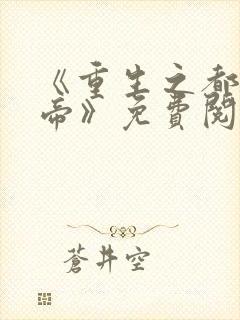 《重生之都
帝》免費閱
蒼井空